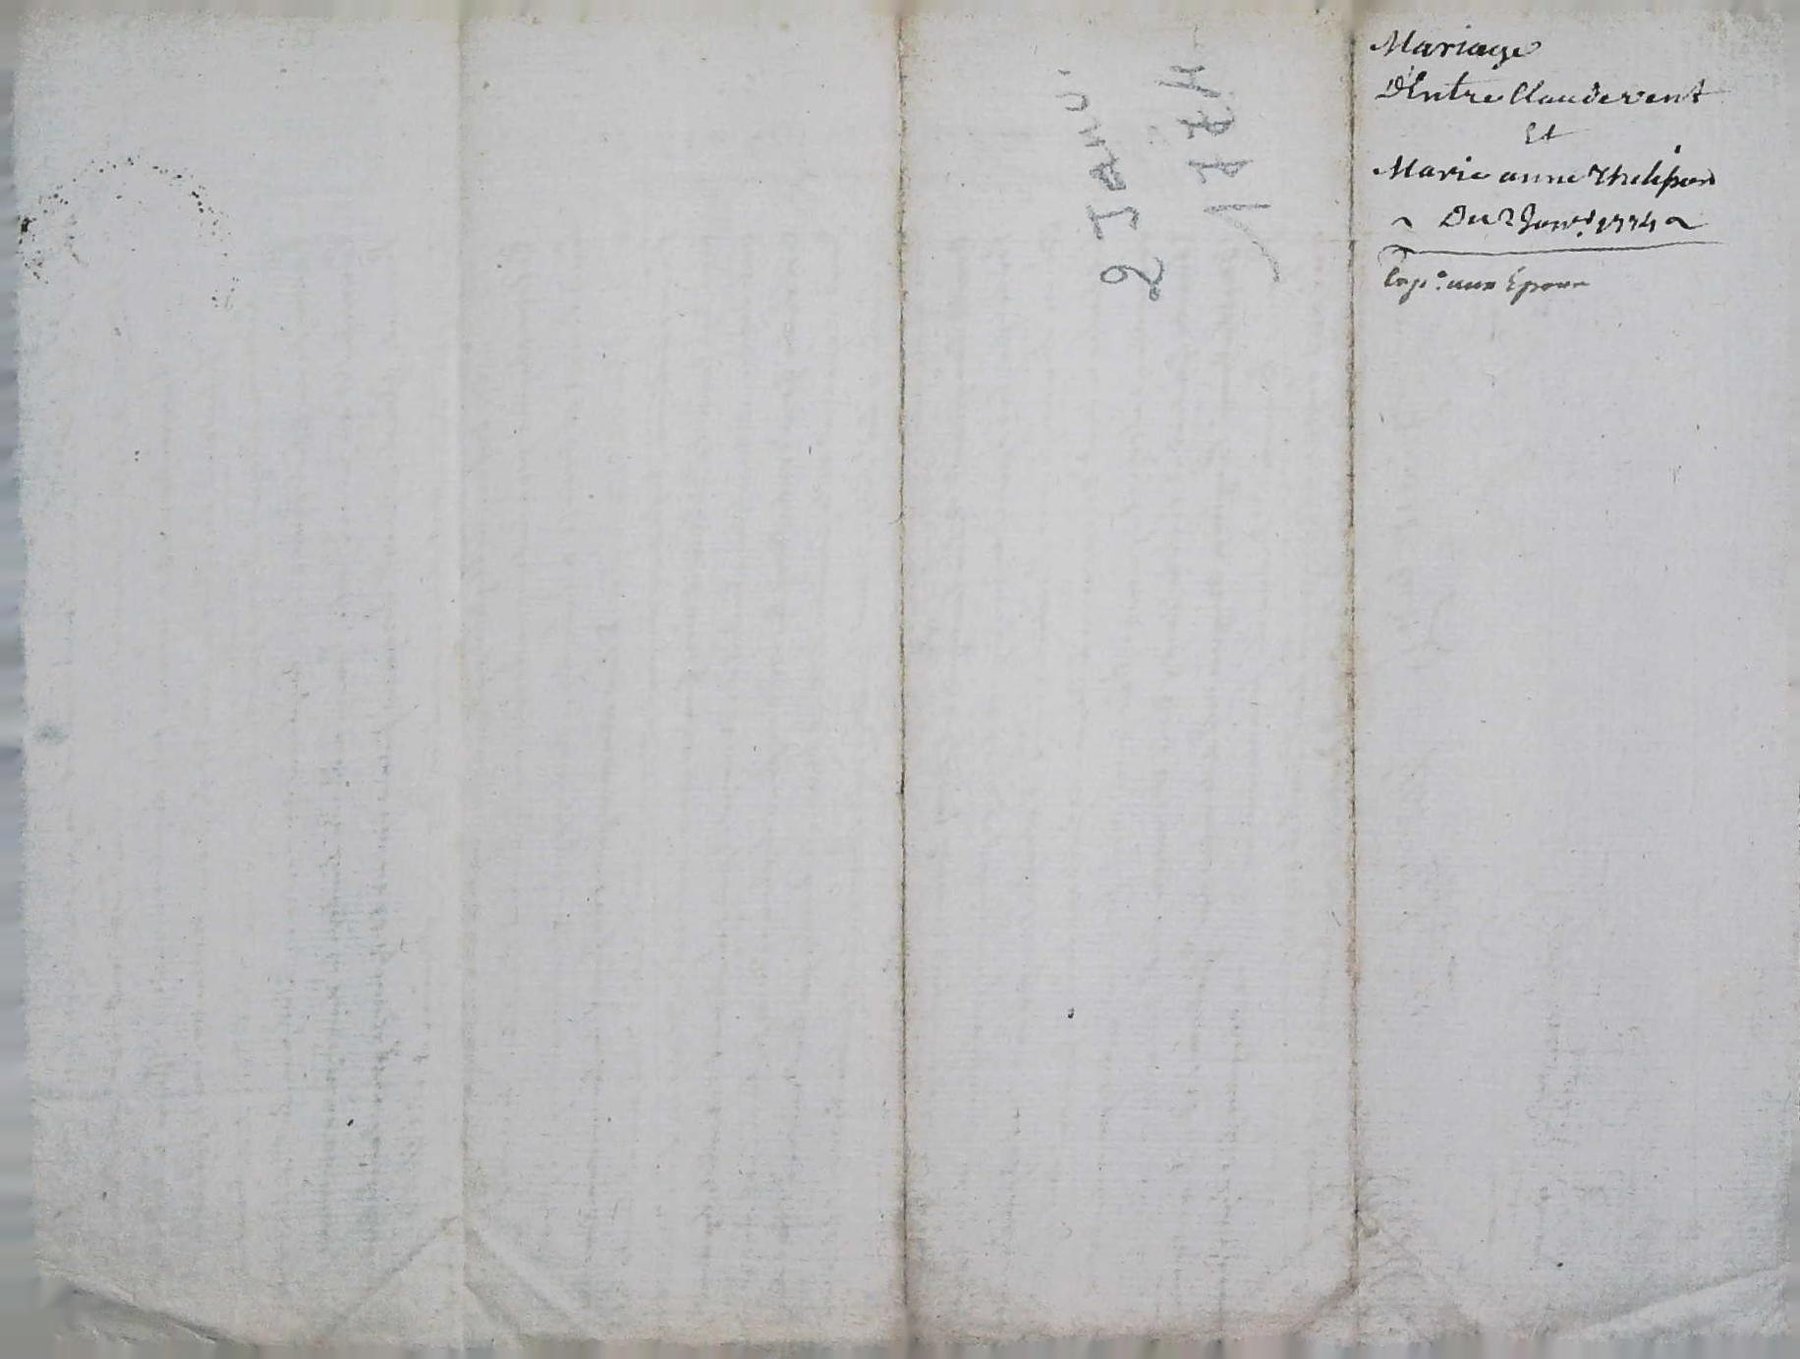 Mariage
D'Entre Claude vent
Et
Marie anne Thelipon
~ Du 2 Janv.r 1774 ~
Exp.n aux Epoux
2 Janv.
1774